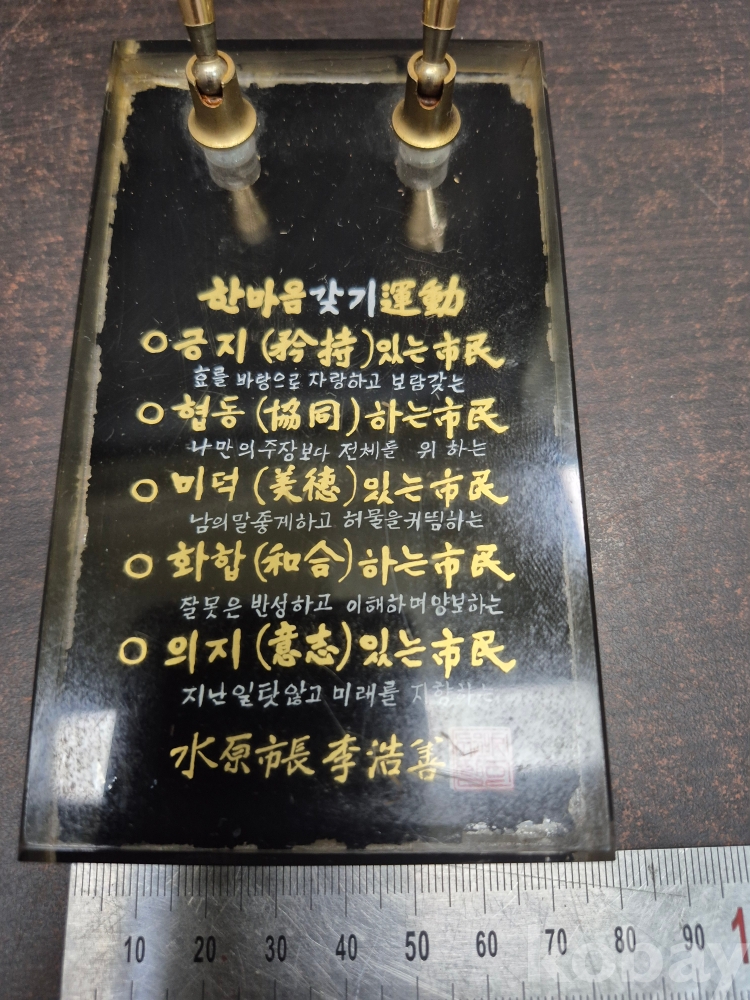 한마음갖기運動
○ 긍지(矜持)있는市民
효를 바탕으로 자랑하고 보람갖는
○ 협동(協同)하는市民
나만의주장보다 전체를 위 하는
○ 미덕(美德)있는市民
남의말좋게하고 허물을귀띔하는
○ 화합(和合)하는市民
잘못은 반성하고 이해하며양보하는
○ 의지(意志)있는市民
지난일탓않고 미래를 지향하는
水原市長 李浩善
10 20 30 40 50 60 70 80 90 1
kobay